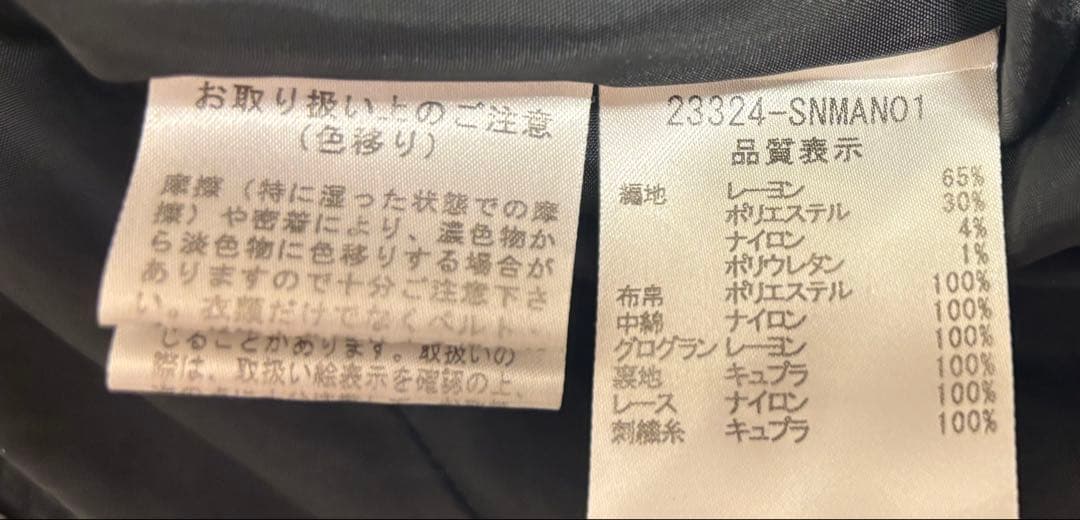 お取り扱い上のご注意
(色移り)
摩擦(特に湿った状態での摩
擦)や密着により、濃色物か
ら淡色物に色移りする場合が
ありますので十分ご注意下さ
い。衣類だけでなくベルト・
じることがあります。取扱いの
際は、取扱い絵表示を確認の上、
23324-SNMAN01
品質表示
編地 レーヨン 65%
ポリエステル 30%
ナイロン 4%
ポリウレタン 1%
布帛 ポリエステル 100%
中綿 ナイロン 100%
グログラン レーヨン 100%
裏地 キュプラ 100%
レース ナイロン 100%
刺繍糸 キュプラ 100%